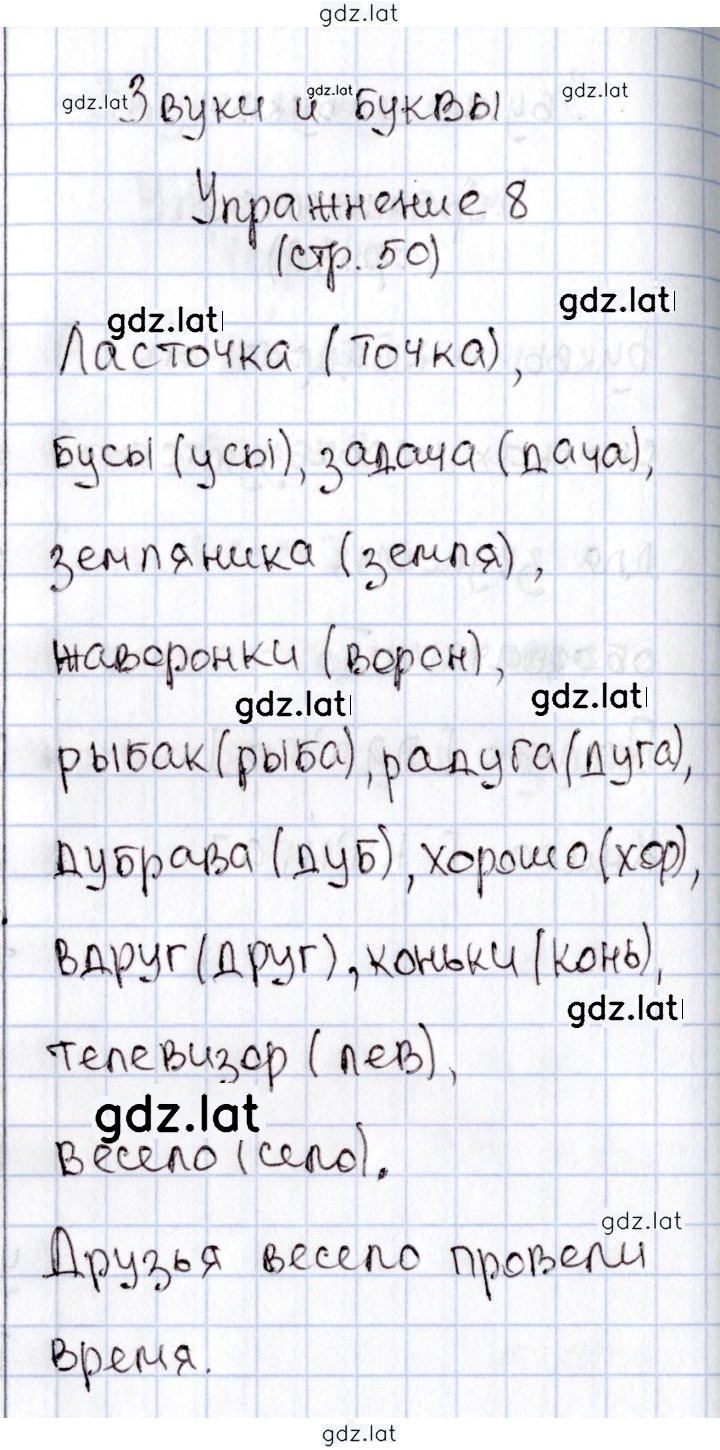 gdz.lat
gdz.lat gdz.lat gdz.lat
Звуки и буквы
Упражнение 8
(стр. 50)
gdz.lat gdz.lat
Ласточка (точка),
бусы (усы), задача (дача),
земляника (земля),
жаворонки (ворон),
gdz.lat gdz.lat
рыбак (рыба), радуга (дуга),
дубрава (дуб), хорошо (хор),
вдруг (друг), коньки (конь),
gdz.lat
телевизор (лев),
gdz.lat
весело (село).
gdz.lat
Друзья весело провели
время.
gdz.lat